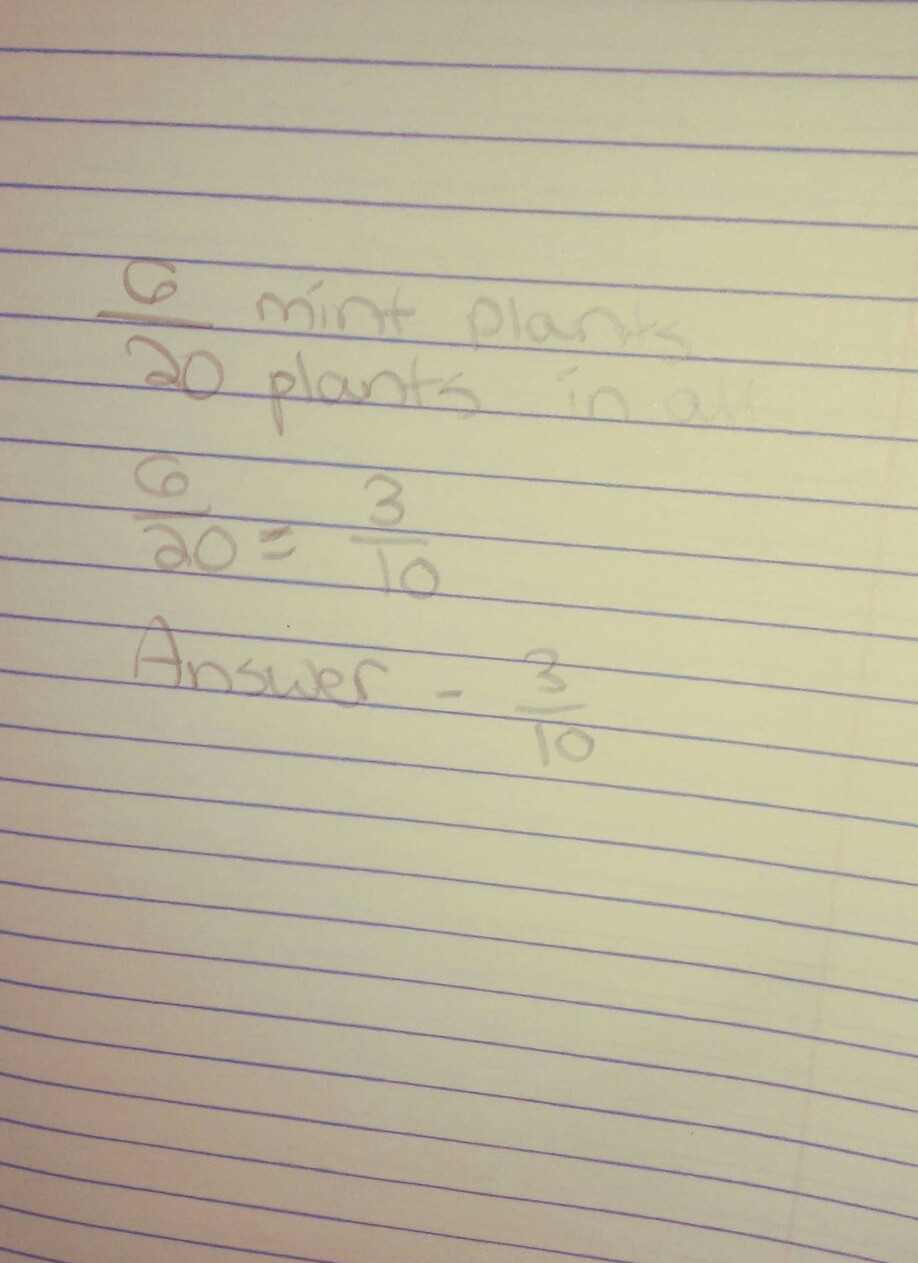 6/20 mint plants
plants in all
6/20 = 3/10
Answer - 3/10